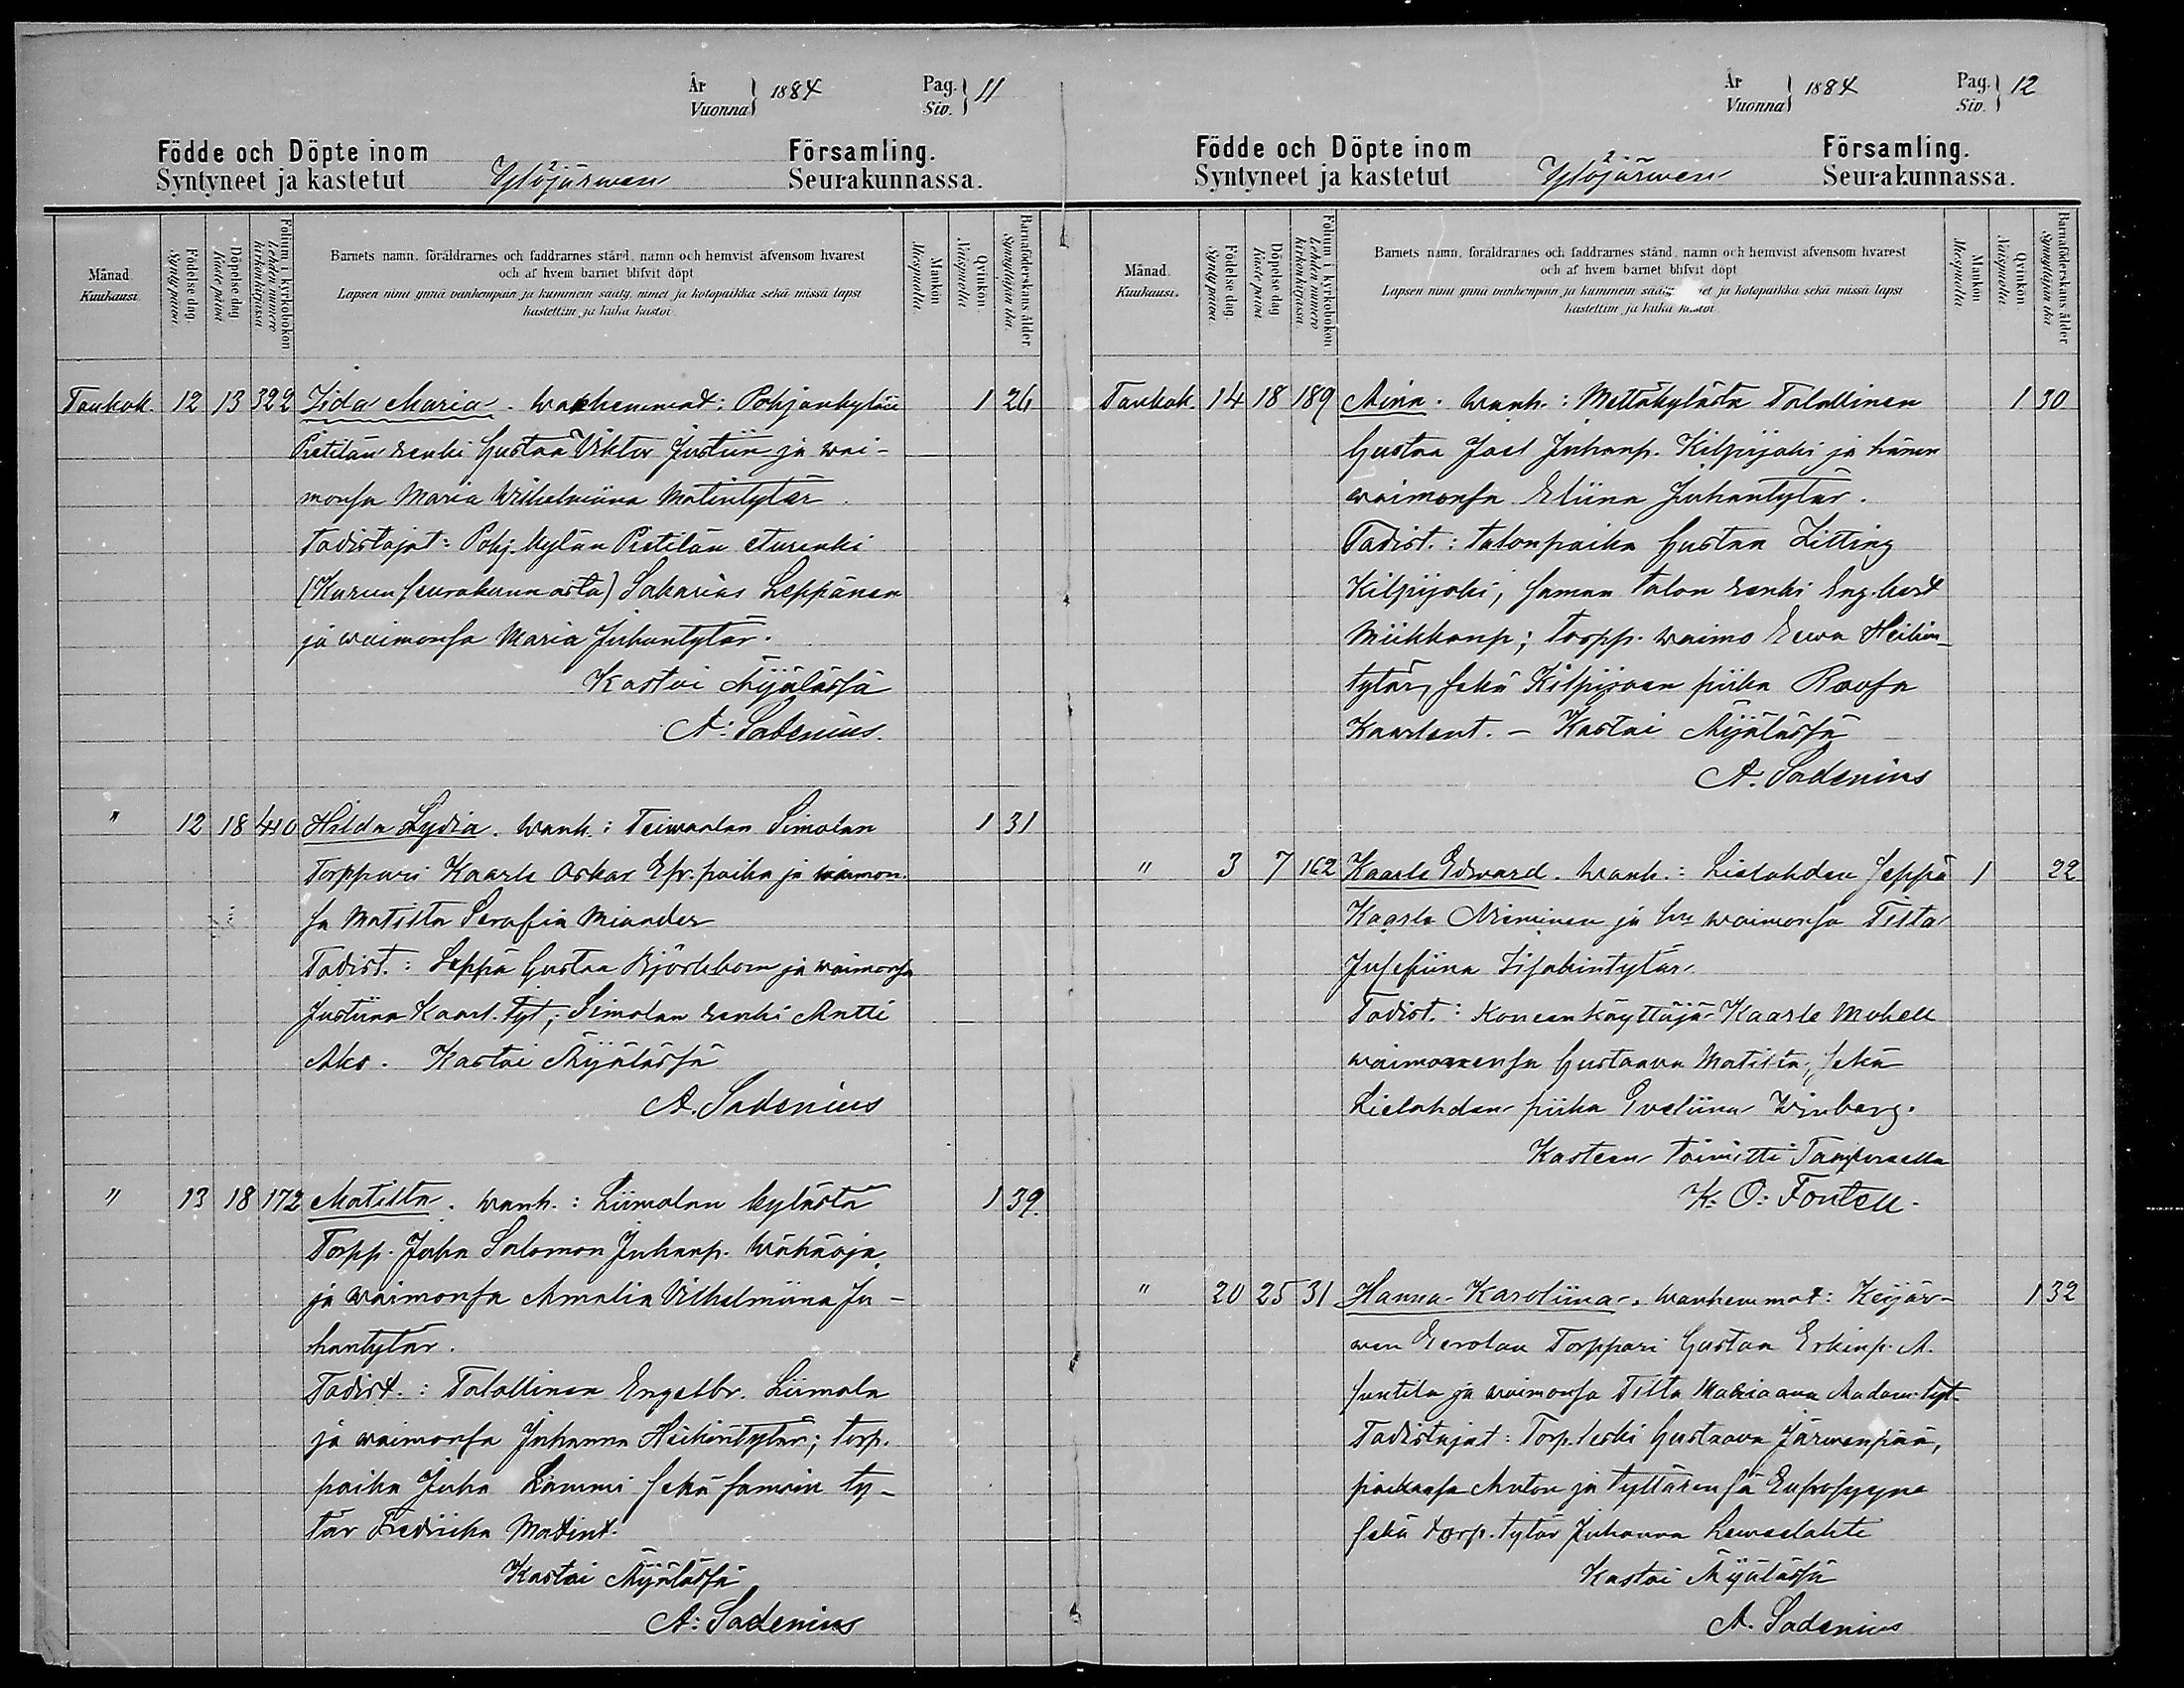 År
Vuonna } 1884 Pag.
Siv. } 11
Födde och Döpte inom Församling.
Syntyneet ja kastetut Ylöjärwen Seurakunnassa.
Månad.
Kuukausi.
Födelse dag.
Synty päivä
Döpelse dag
Kaste päivä
Folium i kyrkoboken
Lehden numero kirkonkirjassa
Barnets namn, föräldrarnes och faddrarnes stånd, namn och hemvist äfvensom hvarest
och af hvem barnet blifvit döpt
Lapsen nimi ynnä vanhempain ja kummein sääty, nimet ja kotopaikka sekä missä lapsi
kastettiin ja kuka kastoi
Mankön
Miespuolia
Qvinkön.
Naispuolia
Barnaföderskans ålder
Synnyttäjän ikä
Toukok. 12 13 322 Iida Maria. Wanhemmat: Pohjankylän 1 26
Pietilän renki Gustaa Viktor Justiin ja wai-
monsa Maria Wilhelmiina Matintytär
Todistajat: Pohj. kylän Pietilän
(Kurun seurakunnasta) Sakarias Leppänen
ja waimonsa Maria Juhantytär.
Kastoi Äijälässä
A. Sadenius.
" 12 18 410 Hilda Lydia. Wanh.: Teiwaalan Simolan 1 31
Torppari Kaarle Oskar Efr. poika ja waimon-
sa Matilta Serafia Miander
Todist.: Seppä Gustaa Björkbom ja waimonsa
Justiina Kaarl. tyt; Simolan renki Antti
Ako. Kastoi Äijälässä
A. Sadenius
" 13 18 172 Matilta. Wanh.: Liimolan kylästä 1 39.
Torpp. Juha Salomon Juhanp. Wähäoja
ja waimonsa Amalia Vilhelmiina Ju-
hantytär.
Todist.: Talollinen Engelbr. Liimola
ja waimonsa Juhanna Heikintytär; torp.
poika Juha Lammi sekä samoin ty-
tär Fredriika Matint.
Kastoi Äijälässä
A. Sadenius
År
Vuonna } 1884 Pag.
Siv. } 12
Födde och Döpte inom Församling.
Syntyneet ja kastetut Ylöjärwen Seurakunnassa.
Månad.
Kuukausi.
Födelse dag.
Synty päivä
Döpelse dag
Kaste päivä
Folium i kyrkoboken
Lehden numero kirkonkirjassa
Barnets namn, föräldrarnes och faddrarnes stånd, namn och hemvist äfvensom hvarest
och af hvem barnet blifvit döpt
Lapsen nimi ynnä vanhempain ja kummein ja kotopaikka sekä missä lapsi
kastettiin ja kuka kastoi
Mankön
Miespuolia
Qvinkön.
Naispuolia.
Barnaföderskans ålder
Synnyttäjän ikä
Toukok. 14 18 189 Aina. Wanh.: Mettäkylästä Talollinen 1 30
Gustaa Joel Juhanp. Kilpijoki ja hänen
waimonsa Eliina Juhantytär.
Todist.: talonpoika Gustaa Litting
Kilpijoki, saman talon renki Eng. bert
Miikkanp; torpp. waimo Eewa Heikin-
tytär, sekä Kilpijoen piika Roosa
Kaarlent. - Kastoi Äijälässä
A. Sadenius
" 3 7 162 Kaarle Edward. Wanh.: Lielahden seppä 1 22
Kaarle Nieminen ja waimonsa Tilta
Josefiina Iisakintytär.
Todist.: Koneenkäyttäjä Kaarle Mohell
waimonensa Gustaava Matilta, sekä
Lielahden piika Eveliina Winberg.
Kasteen toimitti Tampereella
K. O. Fontell.
" 20 25 31 Hanna Karoliina. Wanhemmat: Keijär- 1 32
wen Eerolan Torppari Gustaa Erkinp. A.
Suntila ja waimonsa Tilta Mariaana Aadam. tyt.
Todistajat: Torp. leski Gustaava Järwenpää,
poikansa Anton ja tyttärensä Eufrosyyna
sekä torp. tytär Juhanna
Kastoi Äijälässä
A. Sadenius